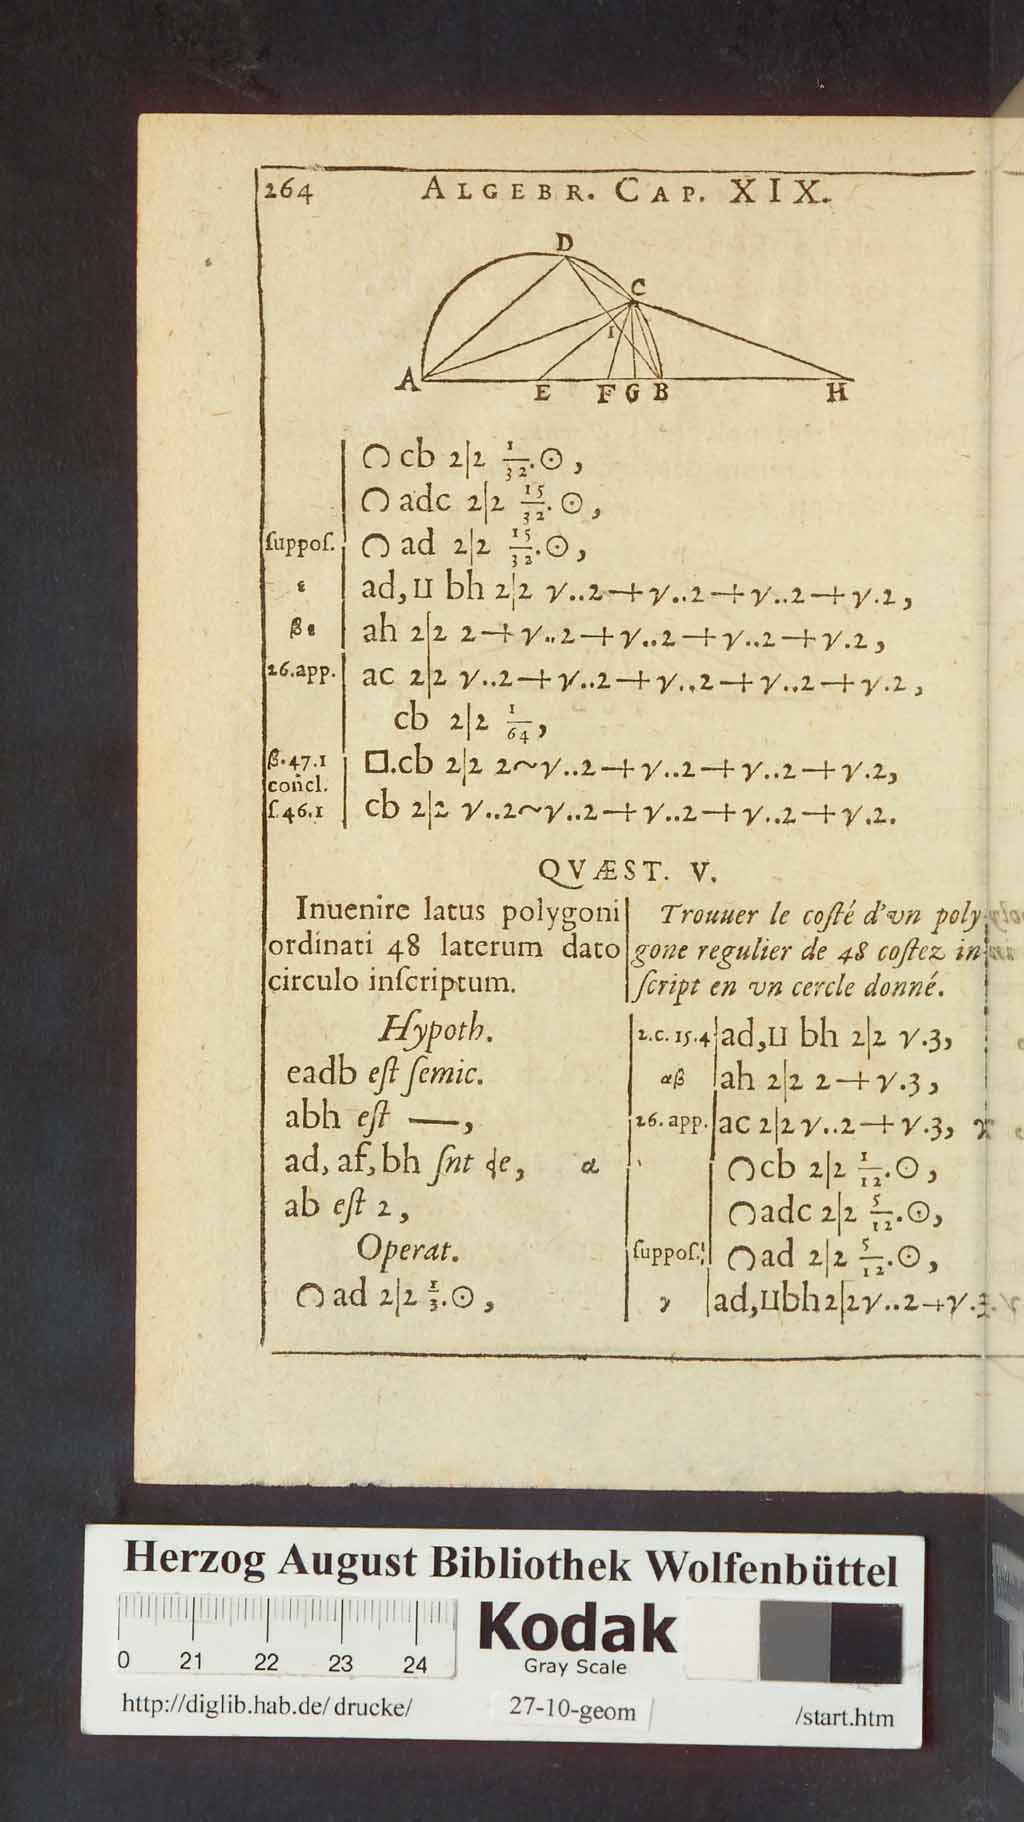 264 ALGEBR. CAP. XIX.
D
C
I
A E F G B H
◠ cb 2|2 1/32.⊙,
◠ adc 2|2 15/32.⊙,
ſuppoſ. ◠ ad 2|2 15/32.⊙,
ε ad, ⊔ bh 2|2 √..2+√..2+√..2+√.2,
βε ah 2|2 2+√..2+√..2+√..2+√.2,
26.app. ac 2|2 √..2+√..2+√..2+√..2+√.2,
cb 2|2 1/64,
β.47.1 □.cb 2|2 2~√..2+√..2+√..2+√.2,
concl.
ſ.46.1 cb 2|2 √..2~√..2+√..2+√..2+√.2.
QVÆST. V.
Inuenire latus polygoni
ordinati 48 laterum dato
circulo inſcriptum.
Trouuer le coſté d'vn poly
gone regulier de 48 coſtez in
ſcript en vn cercle donné.
Hypoth.
eadb eſt ſemic.
abh eſt —,
ad, af, bh ſnt ɖe, α
ab eſt 2,
Operat.
◠ ad 2|2 1/3.⊙,
2.c.15.4 ad, ⊔ bh 2|2 √.3,
αβ ah 2|2 2+√.3,
26.app. ac 2|2 √..2+√.3, γ
◠ cb 2|2 1/12.⊙,
◠ adc 2|2 5/12.⊙,
ſuppoſ. ◠ ad 2|2 5/12.⊙,
γ ad, ⊔ bh 2|2 √..2+√.3.
Herzog August Bibliothek Wolfenbüttel
Kodak
Gray Scale
0 21 22 23 24
http://diglib.hab.de/drucke/ 27-10-geom /start.htm